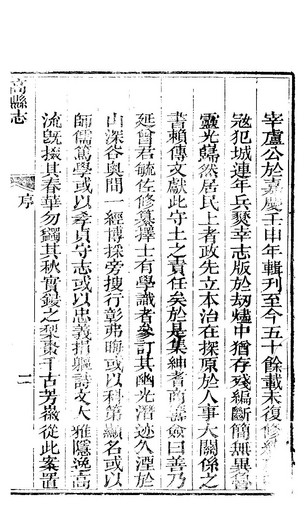 宰盧公於嘉慶壬申年輯刊至今五十餘載未復修
寇犯城連年兵燹幸志版於刧爐中猶存殘編斷簡無異魯
靈光巋然居民上者政先立本治在探原於人事大關係之
書賴傳文獻此守土之責任矣於是集紳者商議僉曰善乃
延曾君毓佐修纂擇士有學識者參訂其幽光潛迹久湮於
山深谷奥間一經博採旁搜行彰弗晦或以科第顯名或以
師儒篤學或以孝貞守志或以忠義捐軀詩文大雅隱逸高
流旣掞其春華勿蠲其秋實錄之棃棗千古芳徽從此案置
高縣志
序
二